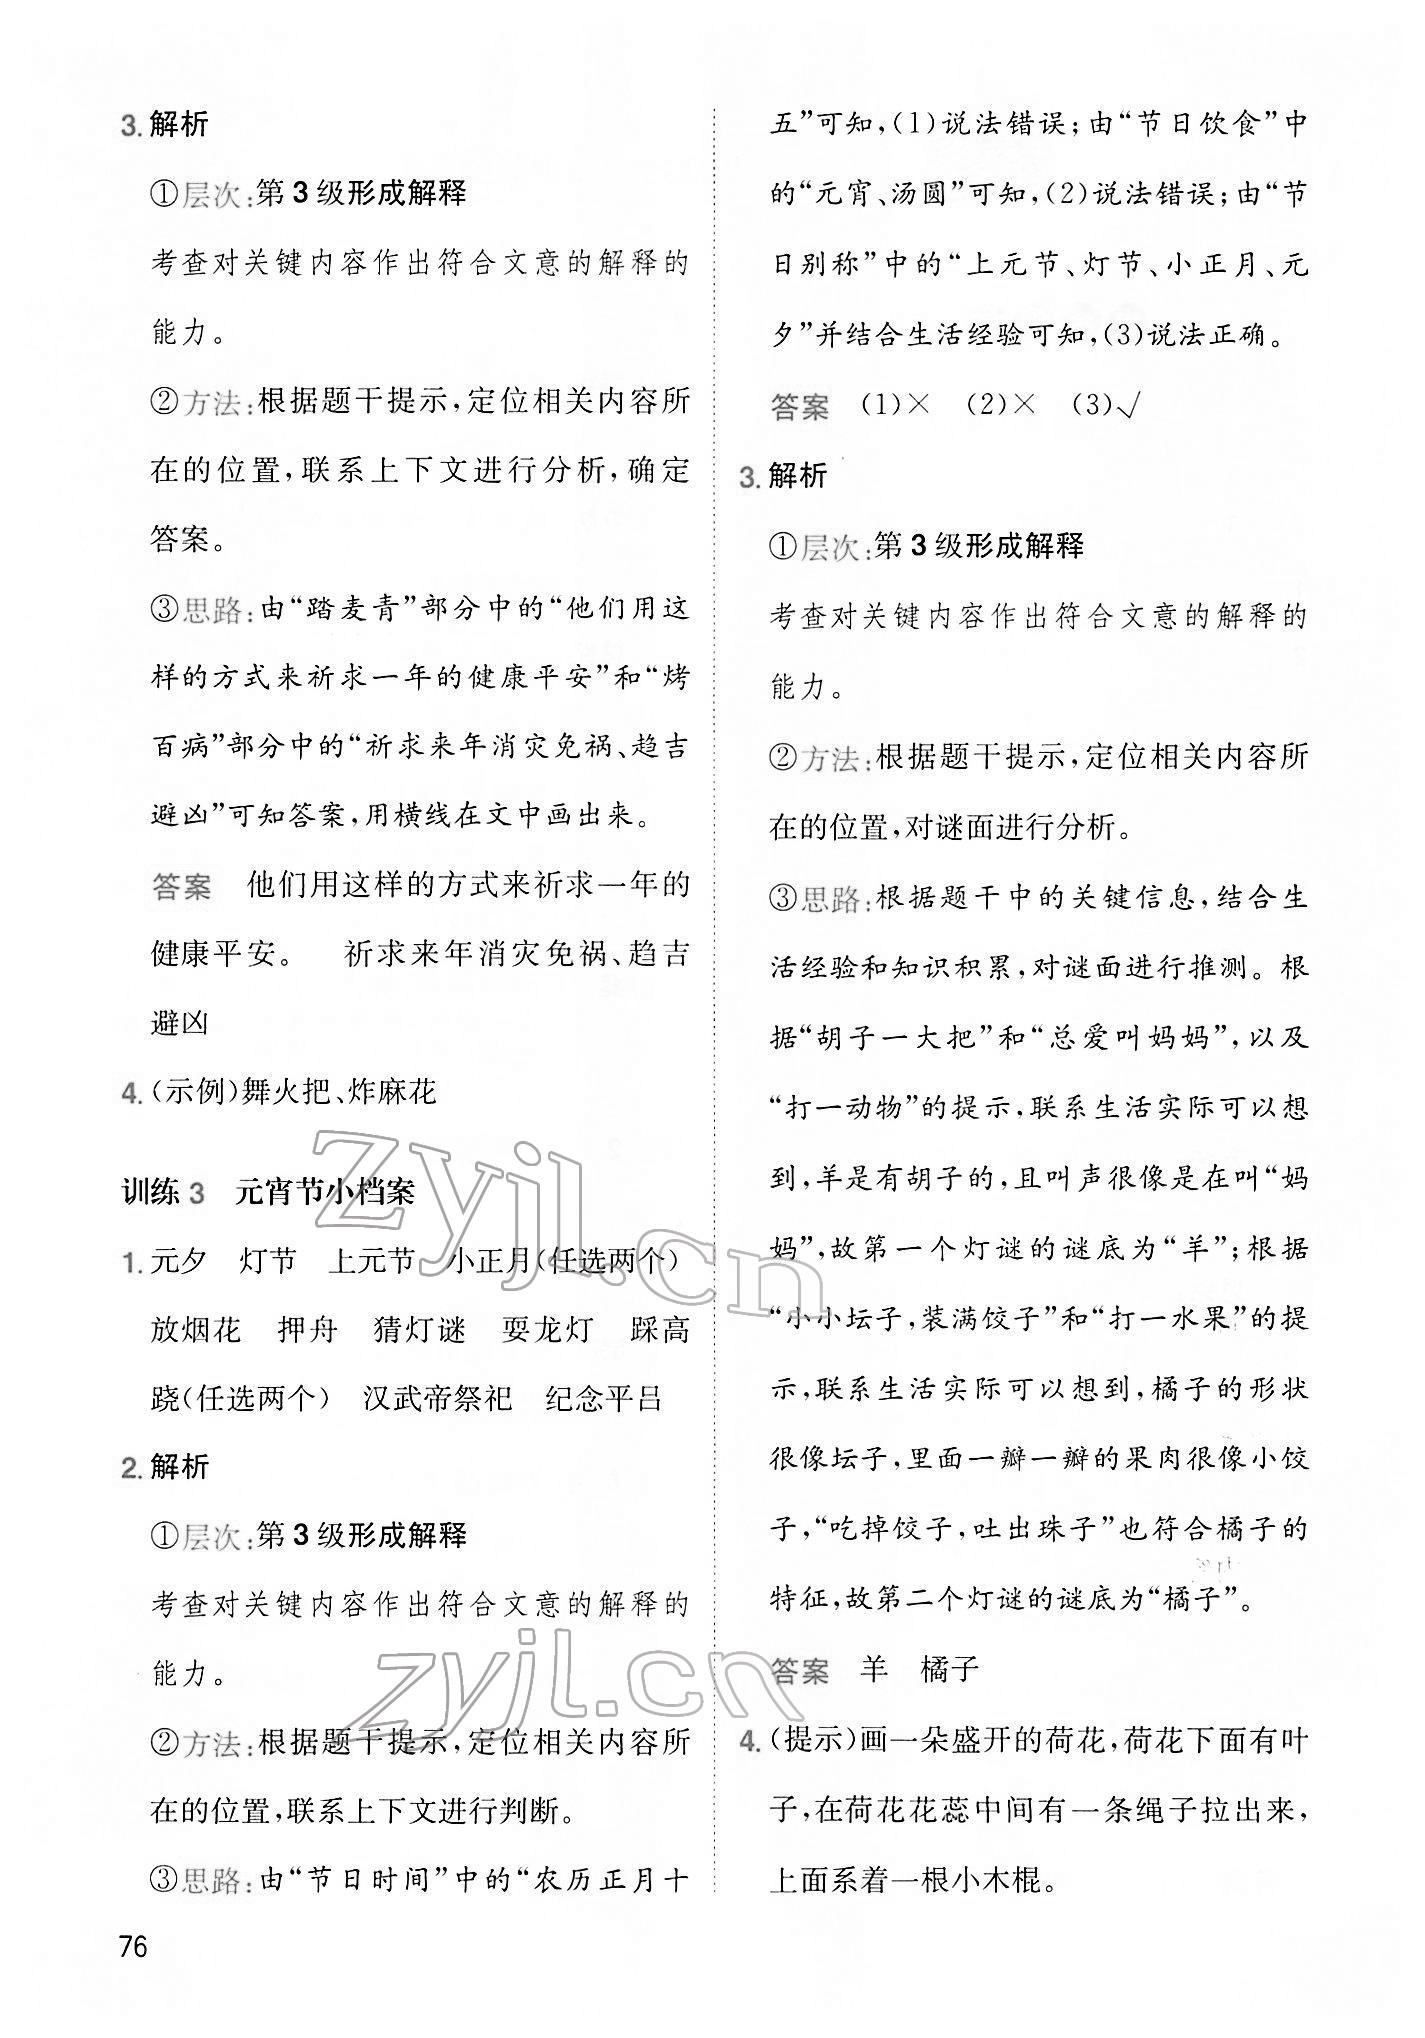 3. 解析
①层次:第3级形成解释
考查对关键内容作出符合文意的解释的
能力。
②方法:根据题干提示,定位相关内容所
在的位置,联系上下文进行分析,确定
答案。
③思路:由“踏麦青”部分中的“他们用这
样的方式来祈求一年的健康平安”和“烤
百病”部分中的“祈求来年消灾免祸、趋吉
避凶”可知答案,用横线在文中画出来。
答案 他们用这样的方式来祈求一年的
健康平安。 祈求来年消灾免祸、趋吉
避凶
4. (示例)舞火把、炸麻花
训练3 元宵节小档案
1. 元夕 灯节 上元节 小正月(任选两个)
放烟花 押舟 猜灯谜 耍龙灯 踩高
跷(任选两个) 汉武帝祭祀 纪念平吕
2. 解析
①层次:第3级形成解释
考查对关键内容作出符合文意的解释的
能力。
②方法:根据题干提示,定位相关内容所
在的位置,联系上下文进行判断。
③思路:由“节日时间”中的“农历正月十
五”可知,(1)说法错误;由“节日饮食”中
的“元宵、汤圆”可知,(2)说法错误;由“节
日别称”中的“上元节、灯节、小正月、元
夕”并结合生活经验可知,(3)说法正确。
答案 (1)× (2)× (3)√
3. 解析
①层次:第3级形成解释
考查对关键内容作出符合文意的解释的
能力。
②方法:根据题干提示,定位相关内容所
在的位置,对谜面进行分析。
③思路:根据题干中的关键信息,结合生
活经验和知识积累,对谜面进行推测。根
据“胡子一大把”和“总爱叫妈妈”,以及
“打一动物”的提示,联系生活实际可以想
到,羊是有胡子的,且叫声很像是在叫“妈
妈”,故第一个灯谜的谜底为“羊”;根据
“小小坛子,装满饺子”和“打一水果”的提
示,联系生活实际可以想到,橘子的形状
很像坛子,里面一瓣一瓣的果肉很像小饺
子,“吃掉饺子,吐出珠子”也符合橘子的
特征,故第二个灯谜的谜底为“橘子”。
答案 羊 橘子
4. (提示)画一朵盛开的荷花,荷花下面有叶
子,在荷花花蕊中间有一条绳子拉出来,
上面系着一根小木棍。
76
zyjl.cn
zyjl.cn